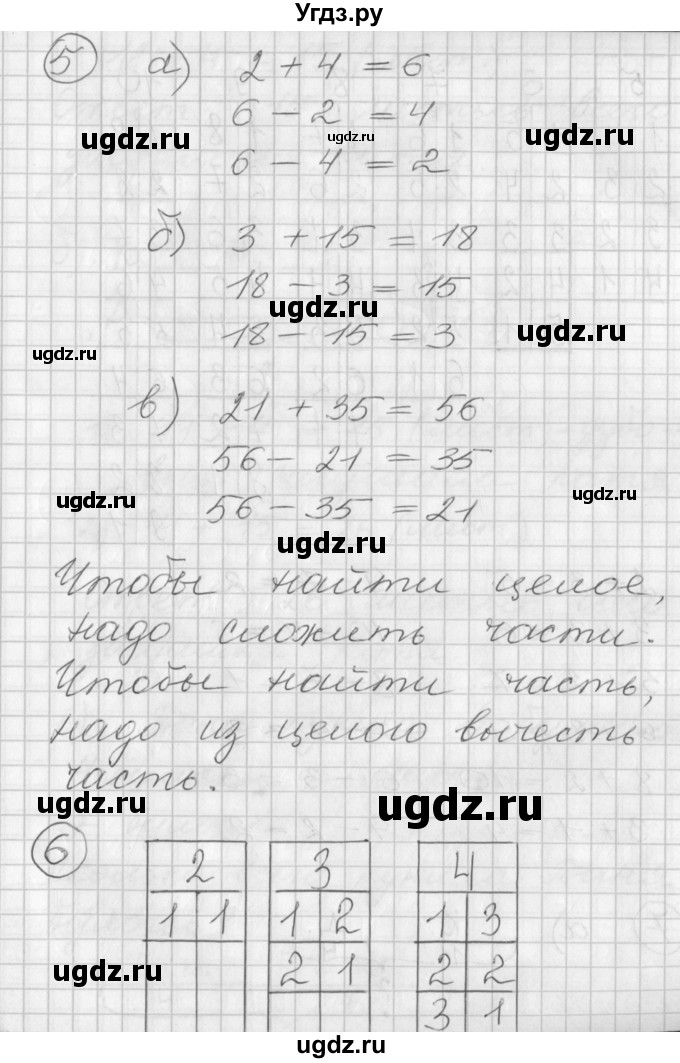 Угдз.ру
5 а) 2 + 4 = 6
6 - 2 = 4
ugdz.ru ugdz.ru ugdz.ru
6 - 4 = 2
б) 3 + 15 = 18
18 - 3 = 15
ugdz.ru
18 - 15 = 3
ugdz.ru
ugdz.ru
в) 21 + 35 = 56
56 - 21 = 35
ugdz.ru ugdz.ru
56 - 35 = 21
ugdz.ru
Чтобы найти целое,
надо сложить части.
Чтобы найти часть,
надо из целого вычесть
часть.
ugdz.ru ugdz.ru
6
2 3 4
1 1 1 2 1 3
2 1 2 2
ugdz.ru
3 1